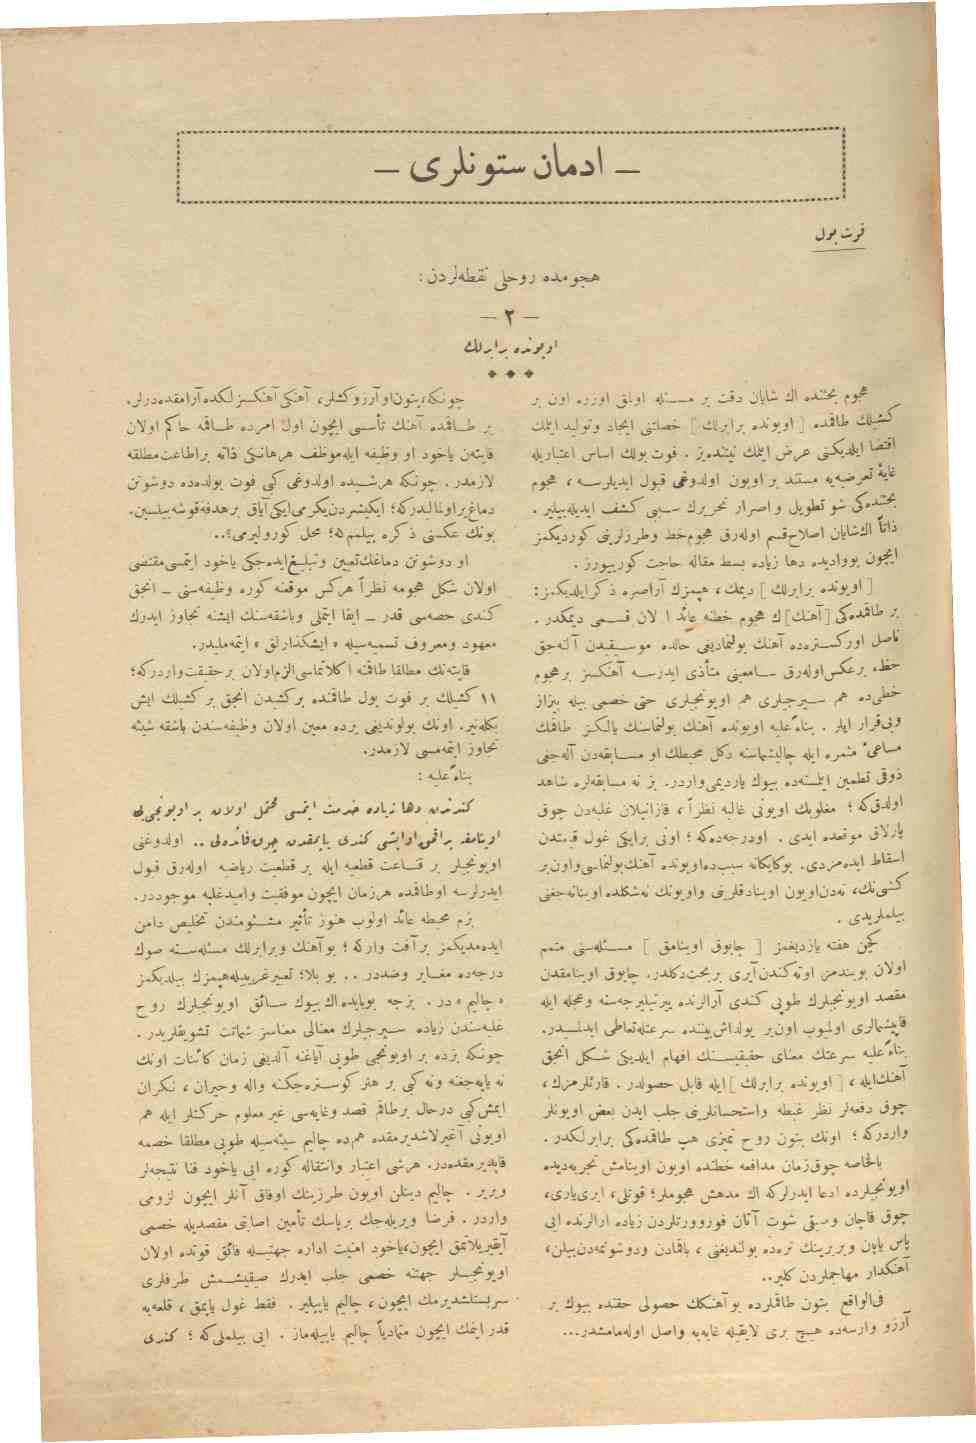 — ادمان ستونلری —
فوت بول
هجومده روحلی نقطه‌لردن :
— ۲ —
اویونده برابرلك
هجوم بحثنده اك شایان دقت بر مسئله اولمق اوزره اون بر
كشیلك طاقمده [ اویونده برابرلك ] خصلتنی ایجاد وتولید ایتمك
اقتضا ایلدیكنی عرض ایتمك نیتنده‌یز . فوت بولك اساس اعتباریله
غایهٔ تعرضیه‌یه مستند بر اویون اولدوغی قبول ایدیلرسه ، هجوم
بحثنده‌كی شو تطویل و اصرار تحریرك سببی كشف ایدیله‌بیلیر .
ذاتاً اك شایان اصلاح قسم اوله‌رق هجوم خط وطرزلرینی كوردیكمز
ایچون بووادیده دها زیاده بسط مقاله حاجت كورییورز .
[ اویونده برابرلك ] دیمك ، هپمزك آراصره ذكر ایلدیكمز :
بر طاقمده‌كی [آهنك] ك هجوم خطنه عائد اولان قسمی دیمكدر .
ناصل اوركستره‌ده آهنك بولنمادیغی حالده موسیقیدن آلنه‌جق
حظ، برعكس اوله‌رق سامعنی متأذی ایدرسه آهنكسز برهجوم
خطی‌ده هم سیرجیلری هم اویونجیلری حتی خصمی بیله بیزار
وبی‌قرار ایلر . بناءً علیه اویونده آهنك بولنماسنك یالكز طاقمك
مساعیٔ مثمره ایله چالیشماسنه دكل محیطك او مسابقه‌دن آله‌جغی
ذوقی تطمین ایتمسنه‌ده بیوك یاردیمی واردر. بز نه مسابقه‌لره شاهد
اولدق‌كه ؛ مغلوبك اویونی غالبه نظراً ، قازانیلان غلبه‌دن چوق
پارلاق موقعده ایدی . اودرجه‌ده‌كه ؛ اونی برایكی غول قیمتدن
اسقاط ایده‌مزدی. بوكایكانه سبب‌ده‌اویونده آهنك‌بولنماسی‌واون‌بر
كشی‌نك، نه‌دن‌اویون اوینادقلرینی واویونك نه‌شكلده اوینانه‌جغنی
بیلملریدی .
كچن هفته یازدیغمز [ چابوق اوینامق ] مسئله‌سنی متمم
اولان بویندمز اوته‌كندن‌آیری بربحث‌دكلدر. چابوق اوینامقدن
مقصد اویونجیلرك طوپی كندی آرالرنده ییرتیلیرجه‌سنه وعجله ایله
قاپیشمالری اولیوب اون‌بر یولداش‌بیننده سرعتله‌تعاطی ایدلسیدر.
بناءً علیه سرعتك معنای حقیقیسنك افهام ایلدیكی شكل انجق
آهنك‌ایله ، [ اویونده برابرلك ] ایله قابل حصولدر . قارئلرمزك ،
چوق دفعه‌لر نظر غبطه واستحسانلرینی جلب ایدن بعض اویونلر
واردركه ؛ اونك بتون روح تمیزی هپ طاقمده‌كی برابرلكدر .
بالخاصه چوق‌زمان مدافعه خطنده اویون اوینامش تجربه‌دیده
اویونجیلرده ادعا ایدرلركه اك مدهش هجوملر؛ قوتلی، ایری‌یاری،
چوق قاچان وسیقی شوت آتان فوروورتلردن زیاده آرالرنده ایی
پاس یاپان وبربرینك نره‌ده بولندیغنی ، باقمادن ودوشونمه‌دن‌بیلن،
آهنكدار مهاجملردن كلیر..
فی‌الواقع بتون طاقملرده بو آهنكك حصولی حقنده بیوك بر
آرزو وارسه‌ده هیچ بری لایقیله غایه‌یه واصل اوله‌مامشدر...
چونكه،بتون‌اوآرزوكشلر، آهنكی آهنكسزلكده‌آرامقده‌درلر.
بر طاقمده آهنك تأسیسی ایچون اول امرده طاقمه حاكم اولان
قاپته‌ن یاخود او وظیفه ایله‌موظف هرهانكی ذاته براطاعت‌مطلقه
لازمدر. چونكه هرشیده اولدوغی كبی فوت بولده‌ده دوشونن
دماغ‌براولنالیدركه؛ ایكیشردن‌یكرمی‌ایكی‌آیاق برهدفه‌قوشه‌بیلسین.
بونك عكسنی ذكره بیلمم‌ه ؛ محل كورولیرمی؟..
او دوشونن دماغك‌تعیین وتبلیغ‌ایده‌جكی یاخود ایتمسی‌مقتضی
اولان شكل هجومه نظراً هركس موقعنه كوره وظیفه‌سنی – انجق
كندی حصه‌سی قدر – ایفا ایتملی وباشقه‌سنك ایشنه تجاوز ایدرك
معهود ومعروف تسمیه‌سیله « ایشكذارلق » ایتمه‌ملیدر.
قاپته‌نك مطلقا طاقمنه آكلاتماسی‌الزم‌اولان برحقیقت‌واردركه؛
۱۱ كشیلك بر فوت بول طاقمنده بركشیدن انجق بركشیلك ایش
بكله‌نیر. اونك بولوندیغی یرده معین اولان وظیفه‌سندن باشقه شیئه
تجاوز ایتمه‌مسی لازمدر.
بناءً علیه :
كندندن دها زیاده خدمت ایتمسی محتمل اولان بر اویونجی‌یی
اوینامغه براقمق،اوایشی كندی یاپمقدن چوق‌فائده‌لی .. اولدوغنی
اویونجیلر بر قناعت قطعیه ایله بر قطعیت ریاضیه اوله‌رق قبول
ایدرلرسه اوطاقمده هرزمان ایچون موفقیت وامیدغلبه موجوددر.
بزم محیطه عائد اولوب هنوز تأثیر مشئومندن تخلیص دامن
ایده‌مدیكمز برآفت واركه ؛ بوآهنك وبرابرلك مسئله‌سنه صوك
درجه‌ده مغایر وضددر .. بو بلا؛ تعبیرغریبیله‌هپمزك بیلدیكمز
« چالیم » در . بزجه بوبابده‌اك‌بیوك سائق اویونجیلرك روح
غلبه‌سندن زیاده سیرجیلرك معنالی معناسز شماتت تشویقلریدر .
چونكه بزده بر اویونجی طوپی آیاغنه آلدیغی زمان كائنات اونك
نه یاپه‌جغنه ونه‌كبی بر هنر كوستره‌جكنه واله وحیران ، نكران
ایمش‌كبی درحال برطاقم قصد وغایه‌سی غیرمعلوم حركتلر ایله هم
اویونی آغیرلاشدیرمقده هم‌ده چالیم سیئه‌سیله طوپی مطلقا خصمه
قاپدیرمقده‌در. هرشی اعتبار وانتقاله كوره ایی یاخود فنا نتیجه‌لر
ویریر . چالیم دینلن اویون طرزینك اوفاق آنلر ایچون لزومی
واردر . فرضا ویریله‌جك برپاسك تأمین اصابتی مقصدیله خصمی
آیقیریلاتمق ایچون،یاخود امنیت اداره جهتیله فائق قوتده اولان
اویونجیلر جهتنه خصمی جلب ایدرك صیقیشمش طرفلری
سربستلشدیرمك ایچون ، چالیم یاپیلیر . فقط غول یاپمق ، قلعه‌یه
قدر ایتمك ایچون متمادیاً چالیم یاپیله‌ماز . ایی بیلملی‌كه ؛ كندی